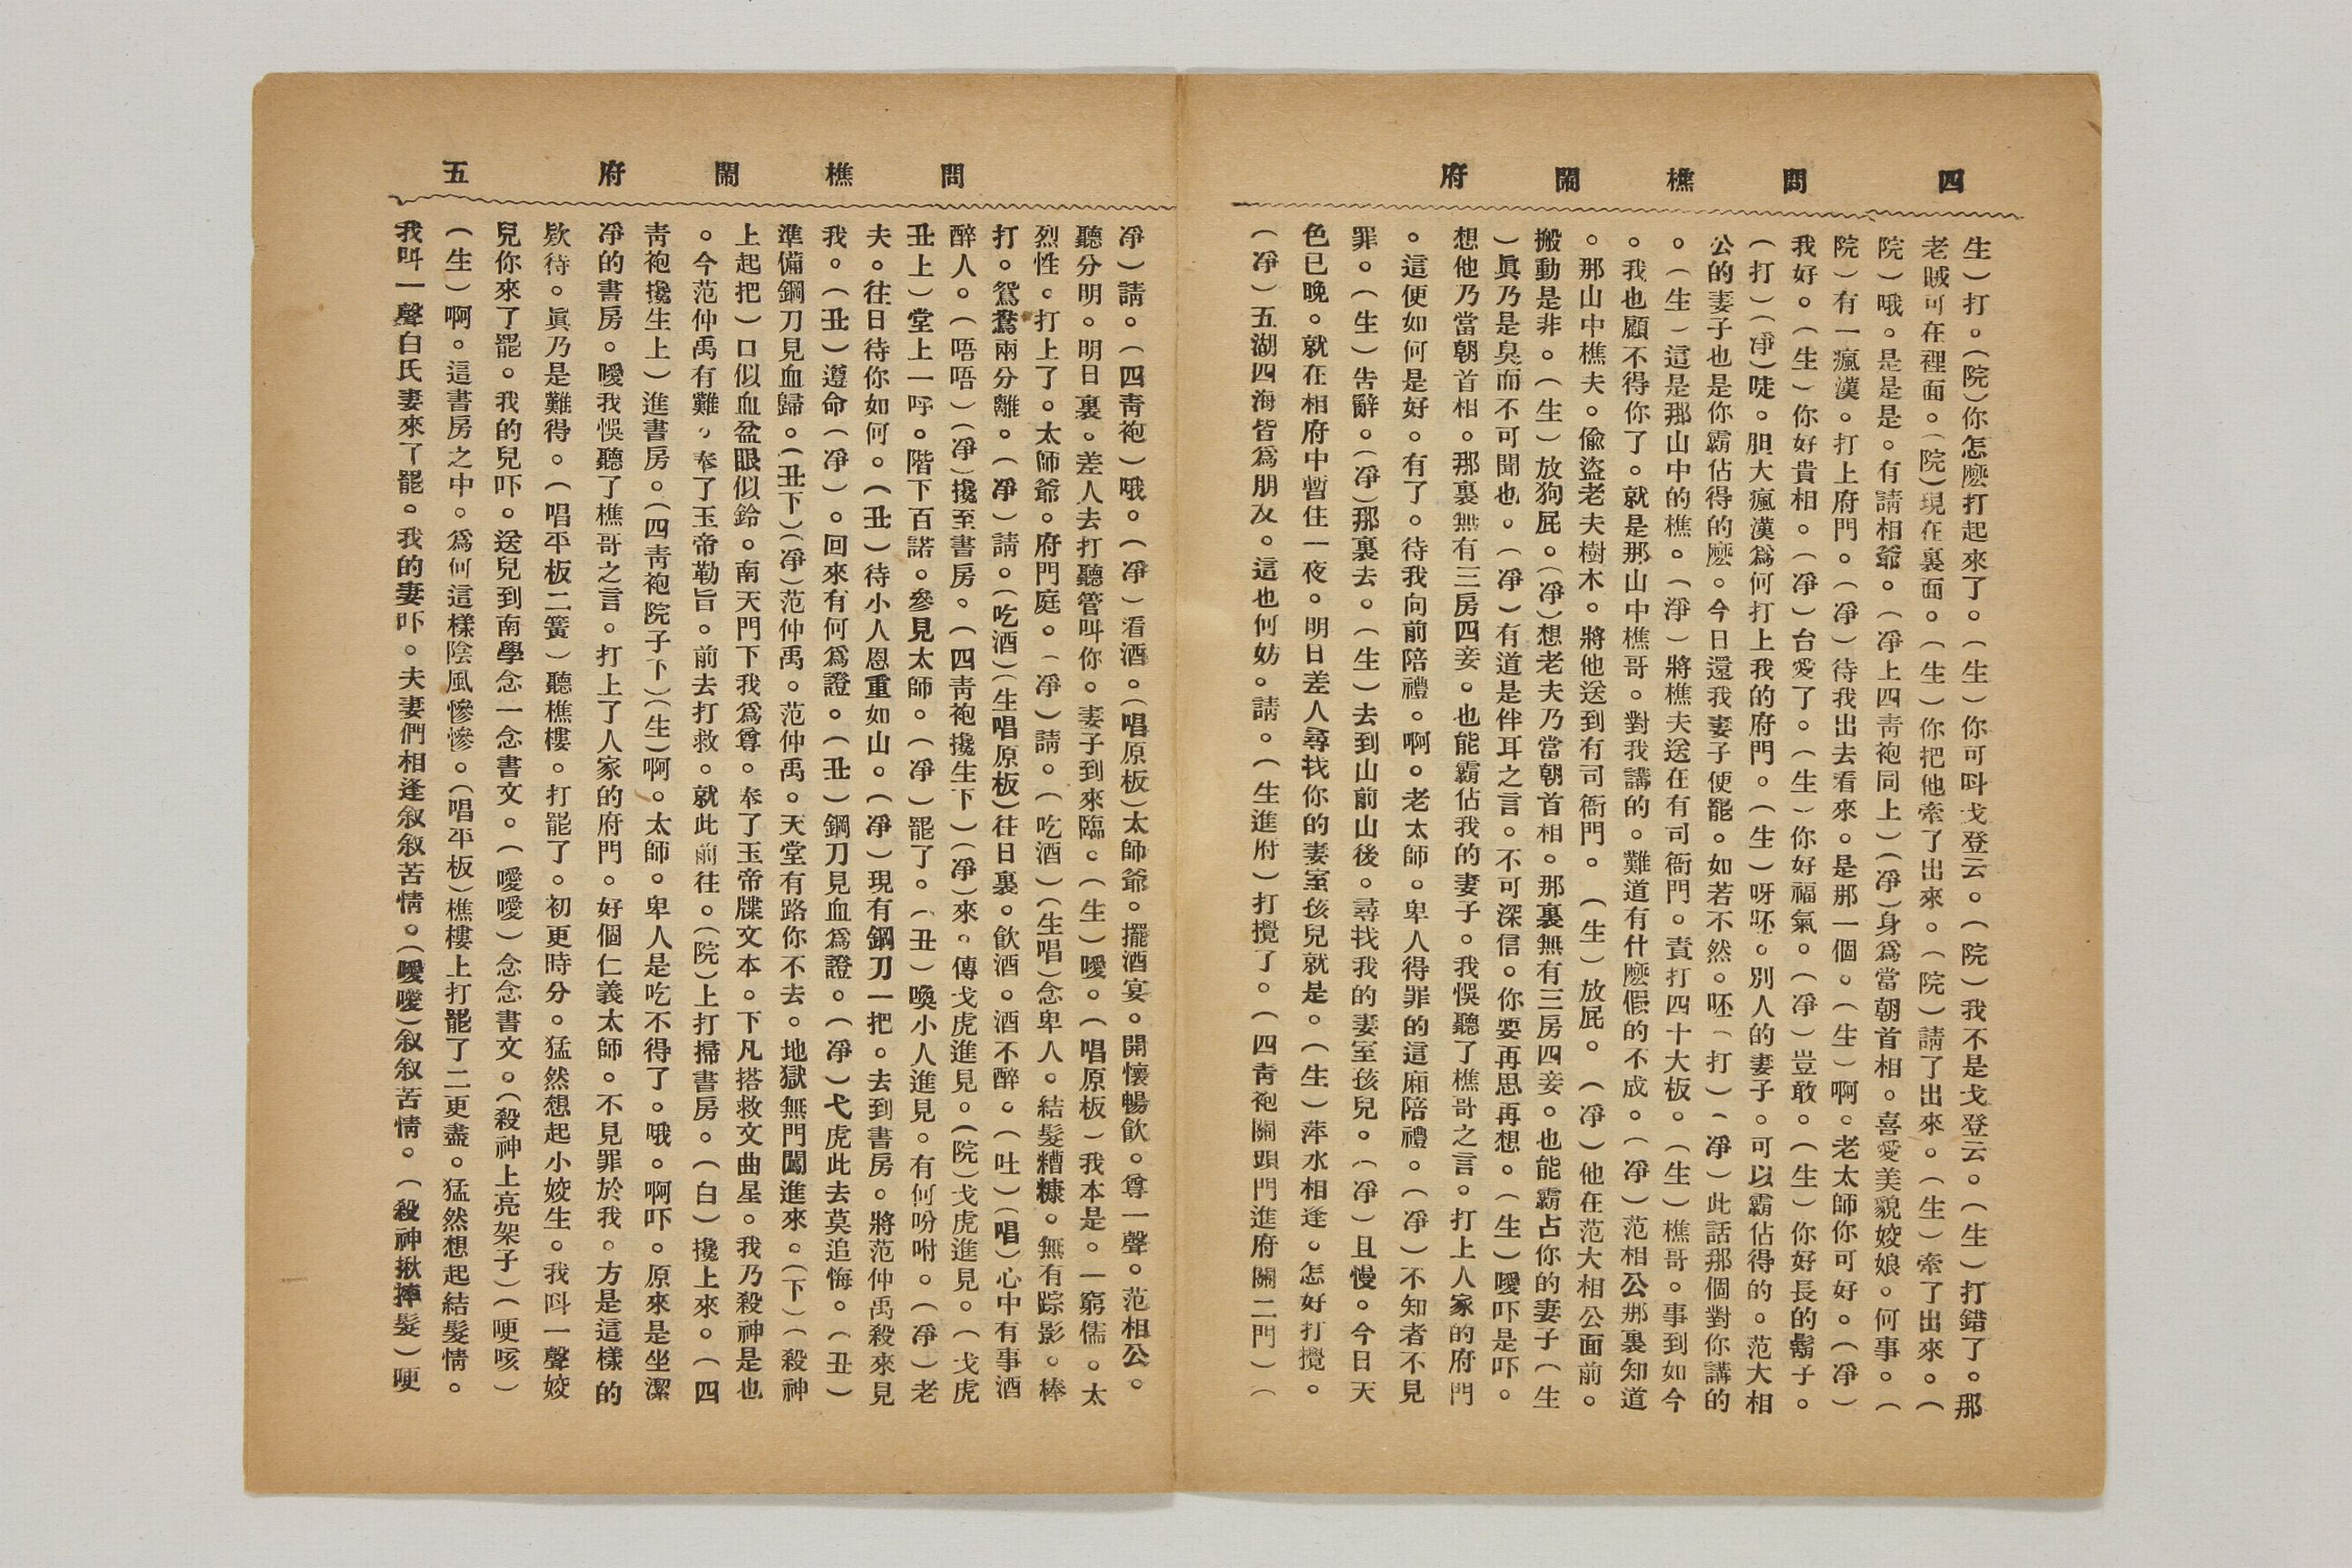 四 問樵鬧府
生)打。(院)你怎麽打起來了。(生)你可呌戈登云。(院)我不是戈登云。(生)打錯了。那
老賊可在裡面。(院)現在裏面。(生)你把他牽了出來。(院)請了出來。(生)牽了出來。(
院)哦。是是是。有請相爺。(凈上四靑袍同上)(凈)身爲當朝首相。喜愛美貌姣娘。何事。(
院)有一瘋漢。打上府門。(凈)待我出去看來。是那一個。(生)啊。老太師你可好。(凈)
我好。(生)你好貴相。(凈)台愛了。(生)你好福氣。(凈)豈敢。(生)你好長的鬍子。
(打)(凈)唗。胆大瘋漢爲何打上我的府門。(生)呀呸。別人的妻子。可以霸佔得的。范大相
公的妻子也是你霸佔得的麽。今日還我妻子便罷。如若不然。呸(打)(凈)此話那個對你講的
。(生)這是那山中的樵。(淨)將樵夫送在有司衙門。責打四十大板。(生)樵哥。事到如今
。我也顧不得你了。就是那山中樵哥。對我講的。難道有什麽假的不成。(凈)范相公那裏知道
。那山中樵夫。偸盜老夫樹木。將他送到有司衙門。(生)放屁。(凈)他在范大相公面前。
搬動是非。(生)放狗屁。(凈)想老夫乃當朝首相。那裏無有三房四妾。也能霸占你的妻子(生
)眞乃是臭而不可聞也。(凈)有道是伴耳之言。不可深信。你要再思再想。(生)噯吓是吓。
想他乃當朝首相。那裏無有三房四妾。也能霸佔我的妻子。我悞聽了樵哥之言。打上人家的府門
。這便如何是好。有了。待我向前陪禮。啊。老太師。卑人得罪的這廂陪禮。(凈)不知者不見
罪。(生)吿辭。(凈)那裏去。(生)去到山前山後。尋找我的妻室孩兒。(凈)且慢。今日天
色已晚。就在相府中暫住一夜。明日差人尋找你的妻室孩兒就是。(生)萍水相逢。怎好打攪。
(凈)五湖四海皆爲朋友。這也何妨。請。(生進府)打攪了。(四靑袍關頭門進府關二門)(
問樵鬧府 五
凈)請。(四靑袍)哦。(凈)看酒。(唱原板)太師爺。擺酒宴。開懷暢飮。尊一聲。范相公。
聽分明。明日裏。差人去打聽管呌你。妻子到來臨。(生)噯。(唱原板)我本是。一窮儒。太
烈性。打上了。太師爺。府門庭。(凈)請。(吃酒)(生唱)念卑人。結髮糟糠。無有踪影。棒
打。鴛鴦兩分離。(凈)請。(吃酒)(生唱原板)往日裏。飮酒。酒不醉。(吐)(唱)心中有事酒
醉人。(唔唔)(凈)攙至書房。(四靑袍攙生下)(凈)來。傳戈虎進見。(院)戈虎進見。(戈虎
丑上)堂上一呼。階下百諾。參見太師。(凈)罷了。(丑)喚小人進見。有何吩咐。(凈)老
夫。往日待你如何。(丑)待小人恩重如山。(凈)現有鋼刀一把。去到書房。將范仲禹殺來見
我。(丑)遵命(凈)。回來有何爲證。(丑)鋼刀見血爲證。(凈)弋虎此去莫追悔。(丑)
準備鋼刀見血歸。(丑下)(凈)范仲禹。范仲禹。天堂有路你不去。地獄無門闖進來。(下)(殺神
上起把)口似血盆眼似鈴。南天門下我爲尊。奉了玉帝牒文本。下凡搭救文曲星。我乃殺神是也
。今范仲禹有難。奉了玉帝勒旨。前去打救。就此前往。(院)上打掃書房。(白)攙上來。(四
靑袍攙生上)進書房。(四靑袍院子下)(生)啊。太師。卑人是吃不得了。哦。啊吓。原來是坐潔
凈的書房。噯我悞聽了樵哥之言。打上了人家的府門。好個仁義太師。不見罪於我。方是這樣的
欵待。眞乃是難得。(唱平板二簧)聽樵樓。打罷了。初更時分。猛然想起小姣生。我呌一聲姣
兒你來了罷。我的兒吓。送兒到南學念一念書文。(噯噯)念念書文。(殺神上亮架子)(哽咳)
(生)啊。這書房之中。爲何這樣陰風慘慘。(唱平板)樵樓上打罷了二更盡。猛然想起結髮情。
我呌一聲白氏妻來了罷。我的妻吓。夫妻們相逢叙叙苦情。(噯噯)叙叙苦情。(殺神揪摔髮)哽